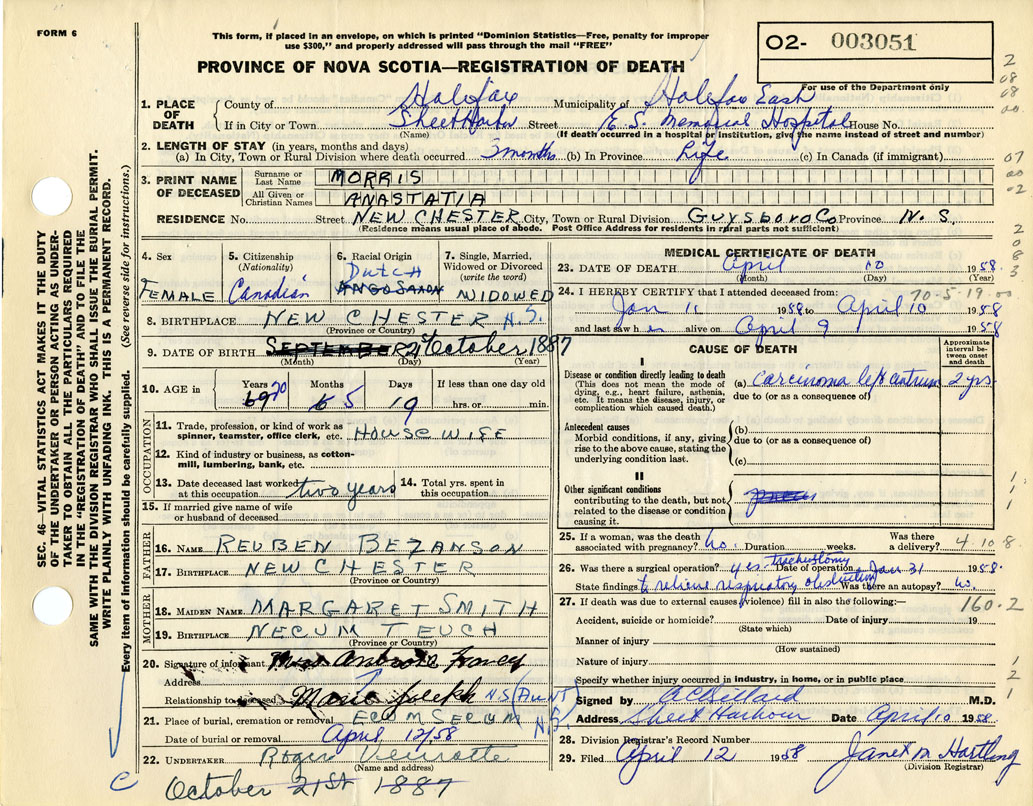 FORM 6
This form, if placed in an envelope, on which is printed "Dominion Statistics—Free, penalty for improper
use $300," and properly addressed will pass through the mail "FREE"
O2- 003051
For use of the Department only
PROVINCE OF NOVA SCOTIA—REGISTRATION OF DEATH
1. PLACE OF DEATH County of Halifax Municipality of Halifax East
If in City or Town Sheet Harbor Street E.S. Memorial Hospital House No.
(Name) (If death occurred in a hospital or institution, give the name instead of street and number)
2. LENGTH OF STAY (in years, months and days)
(a) In City, Town or Rural Division where death occurred 3 months (b) In Province Life (c) In Canada (if immigrant)
3. PRINT NAME OF DECEASED Surname or Last Name MORRIS
All Given or Christian Names ANASTATIA
RESIDENCE No. Street NEW CHESTER City, Town or Rural Division GUYSBORO CO Province N. S.
(Residence means usual place of abode. Post Office Address for residents in rural parts not sufficient)
4. Sex FEMALE
5. Citizenship (Nationality) Canadian
6. Racial Origin Dutch ANGO SAXON
7. Single, Married, Widowed or Divorced (write the word) WIDOWED
8. BIRTHPLACE NEW CHESTER N.S.
(Province or Country)
9. DATE OF BIRTH SEPTEMBER 21 October 1887
(Month) (Day) (Year)
10. AGE in Years 69 70 Months 6 5 Days 19 If less than one day old hrs. or min.
OCCUPATION
11. Trade, profession, or kind of work as spinner, teamster, office clerk, etc. HOUSE WIFE
12. Kind of industry or business, as cotton-mill, lumbering, bank, etc.
13. Date deceased last worked at this occupation two years 14. Total yrs. spent in this occupation
15. If married give name of wife or husband of deceased
FATHER
16. NAME REUBEN BEZANSON
17. BIRTHPLACE NEW CHESTER
(Province or Country)
MOTHER
18. MAIDEN NAME MARGARET SMITH
19. BIRTHPLACE NECUM TEUCH
(Province or Country)
20. Signature of informant Mrs. Ambrose
Address
Relationship to deceased Marie Joseph N.S. (AUNT)
21. Place of burial, cremation or removal ECUM SECUM N.S
Date of burial or removal April 12/58
22. UNDERTAKER Roger
(Name and address)
October 21st 1887
MEDICAL CERTIFICATE OF DEATH
23. DATE OF DEATH April 10 1958
(Month) (Day) (Year)
70-5-19
24. I HEREBY CERTIFY that I attended deceased from:
Jan 11 1958 to April 10 1958
and last saw h er alive on April 9 1958
CAUSE OF DEATH
Approximate interval between onset and death
I
Disease or condition directly leading to death
(This does not mean the mode of dying, e.g., heart failure, asthenia, etc. It means the disease, injury, or complication which caused death.)
(a) Carcinoma left antrum 2 yrs
due to (or as a consequence of)
Antecedent causes
Morbid conditions, if any, giving rise to the above cause, stating the underlying condition last.
(b)
due to (or as a consequence of)
(c)
II
Other significant conditions
contributing to the death, but not related to the disease or condition causing it.
25. If a woman, was the death associated with pregnancy? No. Duration weeks. Was there a delivery? 4.10.8
26. Was there a surgical operation? yes tracheotomy Date of operation Jan 31 1958.
State findings to relieve respiratory obstruction Was there an autopsy? no.
27. If death was due to external causes (violence) fill in also the following:— 160.2
Accident, suicide or homicide? Date of injury 19
(State which)
Manner of injury
(How sustained)
Nature of injury
Specify whether injury occurred in industry, in home, or in public place
Signed by M.D.
Address Sheet Harbour Date April 10 1958.
28. Division Registrar's Record Number
29. Filed April 12 1958 Janet M. Hartling
(Division Registrar)
SEC. 46—VITAL STATISTICS ACT MAKES IT THE DUTY
OF THE UNDERTAKER OR PERSON ACTING AS UNDER-
TAKER TO OBTAIN ALL THE PARTICULARS REQUIRED
IN THE "REGISTRATION OF DEATH" AND TO FILE THE
SAME WITH THE DIVISION REGISTRAR WHO SHALL ISSUE THE BURIAL PERMIT.
WRITE PLAINLY WITH UNFADING INK. THIS IS A PERMANENT RECORD.
Every item of information should be carefully supplied. (See reverse side for instructions.)
C
2
08
08
00
07
00
02
2
0
8
3
1
1
1
1
2
1